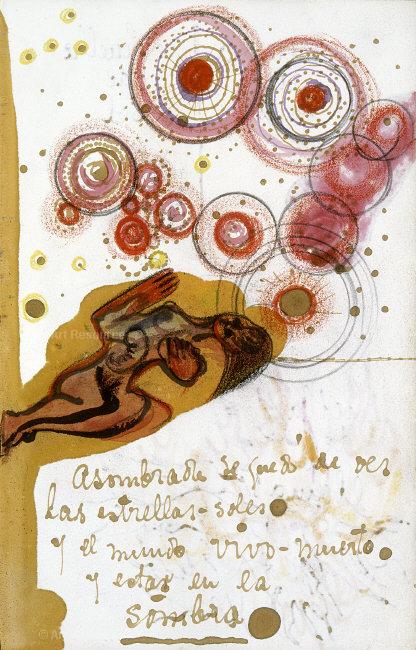 Asombrada se quedó de ver
las estrellas-soles
y el mundo vivo-muerto
y estar en la
sombra